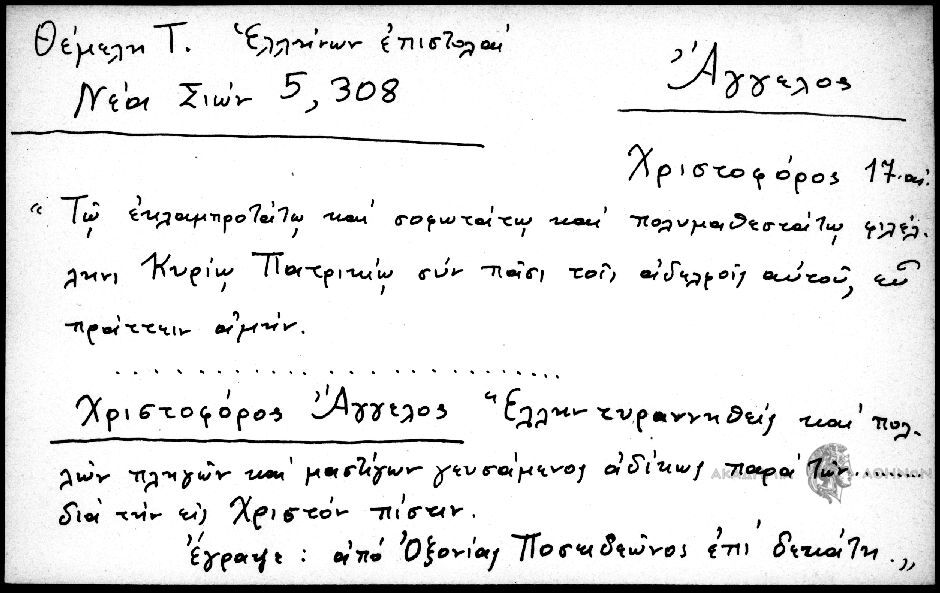 Θέμελη Τ. Ἑλλήνων ἐπιστολαί
Νέα Σιών 5, 308
Ἄγγελος
Χριστοφόρος 17. αἰ.
“ Τῷ ἐκλαμπροτάτῳ καί σοφωτάτῳ καί πολυμαθεστάτῳ φιλέλ-
ληνι Κυρίῳ Πατρικίῳ σύν πᾶσι τοῖς ἀδελφοῖς αὐτοῦ, εὖ
πράττειν ἀμήν.
..............................
Χριστοφόρος Ἄγγελος Ἕλλην τυραννηθείς καί πολ-
λῶν πληγῶν καί μαστίγων γευσάμενος ἀδίκως παρά τῶν........
διά τήν εἰς Χριστόν πίστιν.
Ἔγραψε : ἀπό Ὀξονίας Ποσειδεῶνος ἐπί δεκάτῃ. „
ΑΚΑΔΗΜΙΑ ΑΘΗΝΩΝ